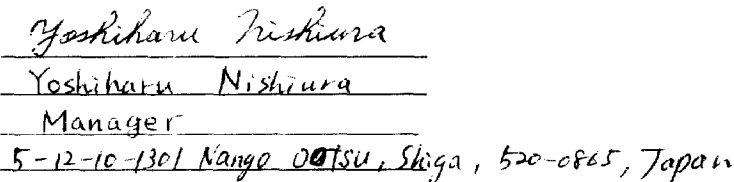 Yoshiharu Nishiura
Yoshiharu Nishiura
Manager
5-12-10-1301 Nango OOTSU, Shiga, 520-0865, Japan